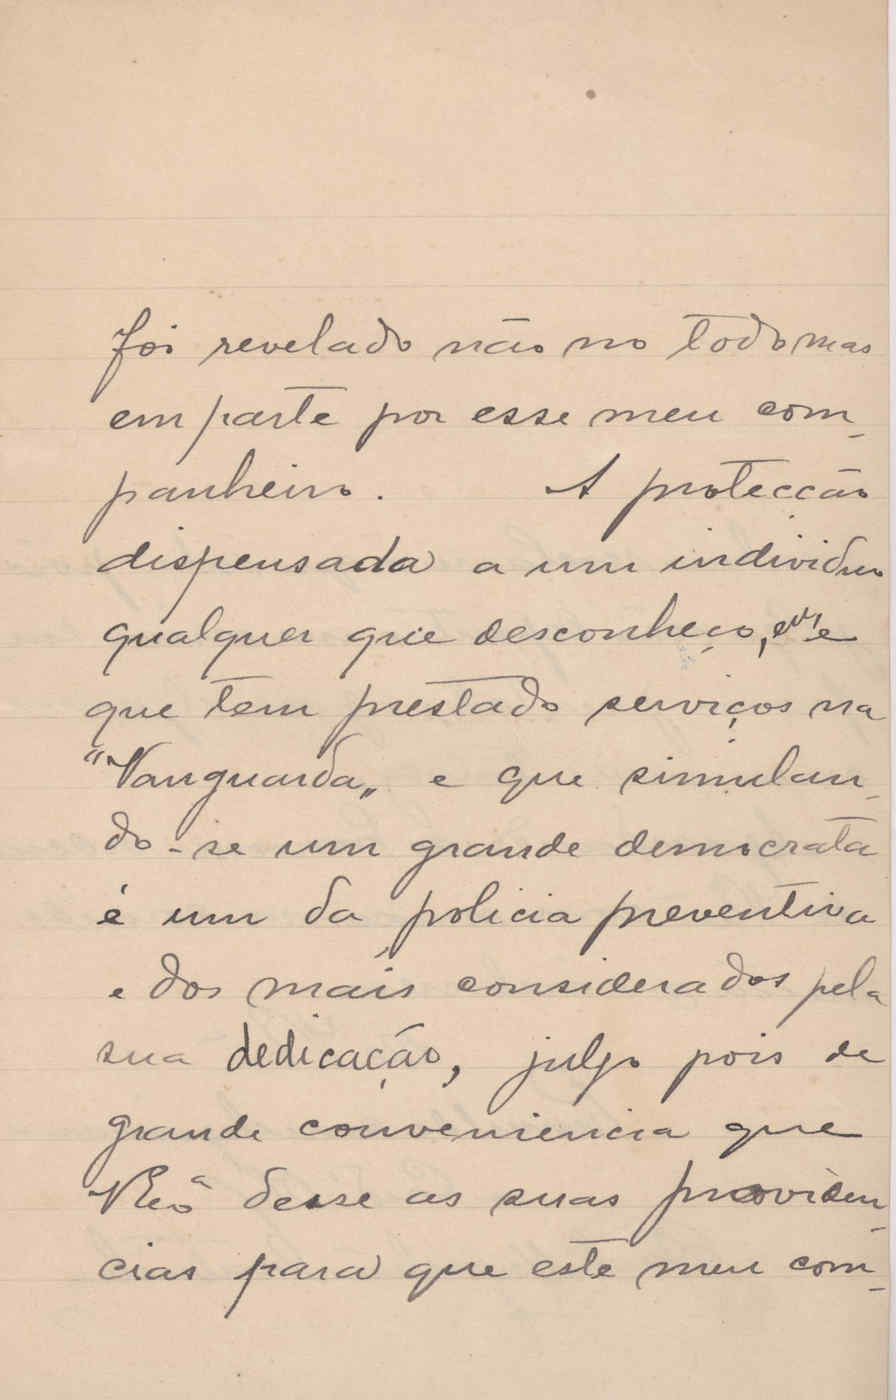 foi revelado não no todo mas
em parte por esse meu com-
panheiro. A protecção
dispensada a um individuo
qualquer que desconheço, e
que tem prestado serviços na
"Vanguarda„ e que simulan-
do-se um grande democrata
é um da policia preventiva
e dos mais considerados pela
sua dedicação, julgo pois de
grande conveniencia que
V. Ex.ª desse as suas providen-
cias para que este meu com-